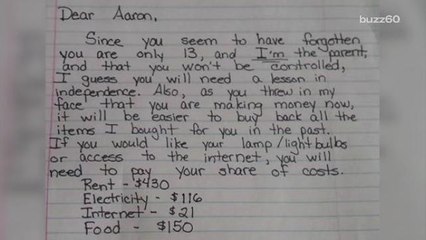 buzz60
Dear Aaron,
Since you seem to have forgotten
you are only 13, and I'm the parent,
and that you won't be controlled,
I guess you will need a lesson in
independence. Also, as you threw in my
face that you are making money now,
it will be easier to buy back all the
items I bought for you in the past.
If you would like your lamp/lightbulbs
or access to the internet, you will
need to pay your share of costs.
Rent - $430
Electricity - $116
Internet - $21
Food - $150